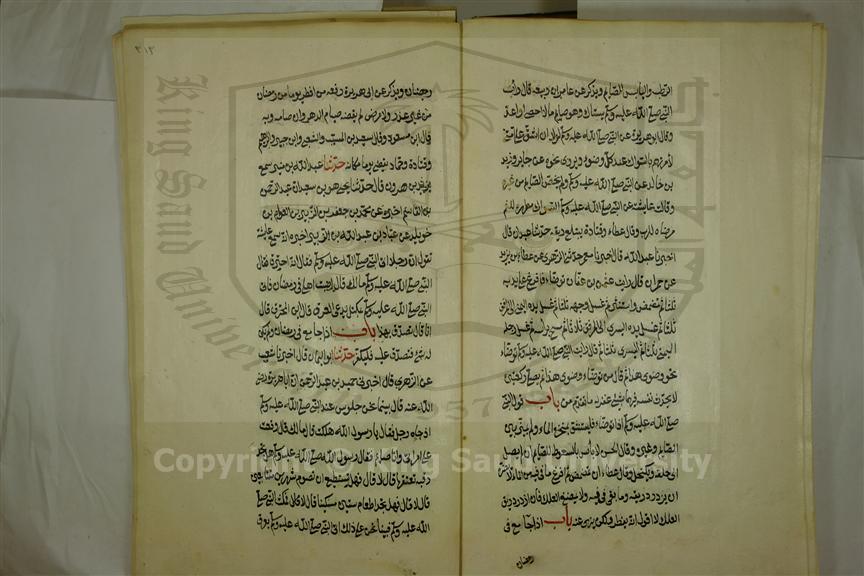 الرطب واليابس للصائم ويذكر عن عامر بن ربيعة قال رأيت
النبي صلى الله عليه وسلم يستاك وهو صائم ما لا احصي او اعد
وقال ابو هريرة عن النبي صلى الله عليه وسلم لولا ان اشق على امتي
لامرتهم بالسواك عند كل وضوء ويروى نحوه عن جابر وزيد
بن خالد عن النبي صلى الله عليه وسلم ولم يخص الصائم من غيره
وقالت عائشة عن النبي صلى الله عليه وسلم السواك مطهرة للفم
مرضاة للرب وقال عطاء وقتادة يبتلع ريقه حدثنا عبدان قال
اخبرنا عبد الله قال اخبرنا معمر حدثني الزهري عن عطاء بن يزيد
عن حمران قال رأيت عثمان بن عفان توضاء فافرغ على يديه
ثلثا ثم تمضمض واستنثر ثم غسل وجهه ثلثا ثم غسل يده اليمنى الى المرفق
ثلثا ثم غسل يده اليسرى الى المرفق ثلثا ثم مسح براسه ثم غسل رجله
اليمنى ثلثا ثم اليسرى ثلثا ثم قال رأيت النبي صلى الله عليه وسلم توضاء
نحو وضوي هذا ثم قال من توضاء وضوي هذا ثم يصلي ركعتين
لا يحدث نفسه فيهما بشيء غفر له ما تقدم من باب قول النبي
صلى الله عليه وسلم اذا توضاء فليستنشق بمنخره الماء ولم يميز بين
الصائم وغيره وقال الحسن لا بأس بالسعوط للصائم ان لم يصل
الى حلقه ويكتحل وقال عطاء ان تمضمض ثم افرغ ما في فيه من الماء لا يضيره
ان يزدرد ريقه وما بقي في فيه ولا يمضغ العلك فان ازدرد ريق
العلك لا اقول انه يفطر ولكن ينهى عنه باب اذا جامع في
رمضان
٣١٣
رمضان ويذكر عن ابي هريرة رفعه من افطر يوما من رمضان
من غير عذر ولا مرض لم يقضه صيام الدهر وان صامه وبه
قال ابن مسعود وقال سعيد بن المسيب والشعبي وابن جبير وابراهيم
وقتادة وحماد يقضي يوما مكانه حدثنا عبد الله بن منير سمع
يزيد بن هرون قال حدثنا يحيى هو بن سعيد ان عبد الرحمن
بن القاسم اخبره عن محمد بن جعفر بن الزبير بن العوام بن
خويلد عن عباد بن عبد الله بن الزبير اخبره انه سمع عائشة
تقول ان رجلا اتى النبي صلى الله عليه وسلم فقال انه احترق فقال
النبي صلى الله عليه وسلم مالك قال اصبت اهلي في رمضان فاتي
النبي صلى الله عليه وسلم بمكتل يدعى العرق فقال اين المحترق قال
انا قال تصدق بهذا باب اذا جامع في رمضان ولم يكن
له شيء فتصدق عليه فليكفر حدثنا ابو اليمان قال اخبرنا شعيب
عن الزهري قال اخبرني حميد بن عبد الرحمن ان ابا هريرة رضي
الله عنه قال بينما نحن جلوس عند النبي صلى الله عليه وسلم
اذ جاءه رجل فقال يا رسول الله هلكت قال مالك قال وقعت
على امراتي وانا صائم فقال رسول الله صلى الله عليه وسلم هل تجد
رقبة تعتقها قال لا قال فهل تستطيع ان تصوم شهرين متتابعين
قال لا قال فهل تجد اطعام ستين مسكينا قال لا قال فمكث النبي صلى
الله عليه وسلم فبينا نحن على ذلك اتي النبي صلى الله عليه وسلم بعرق
King Saud University
1957
Copyright © King Saud University